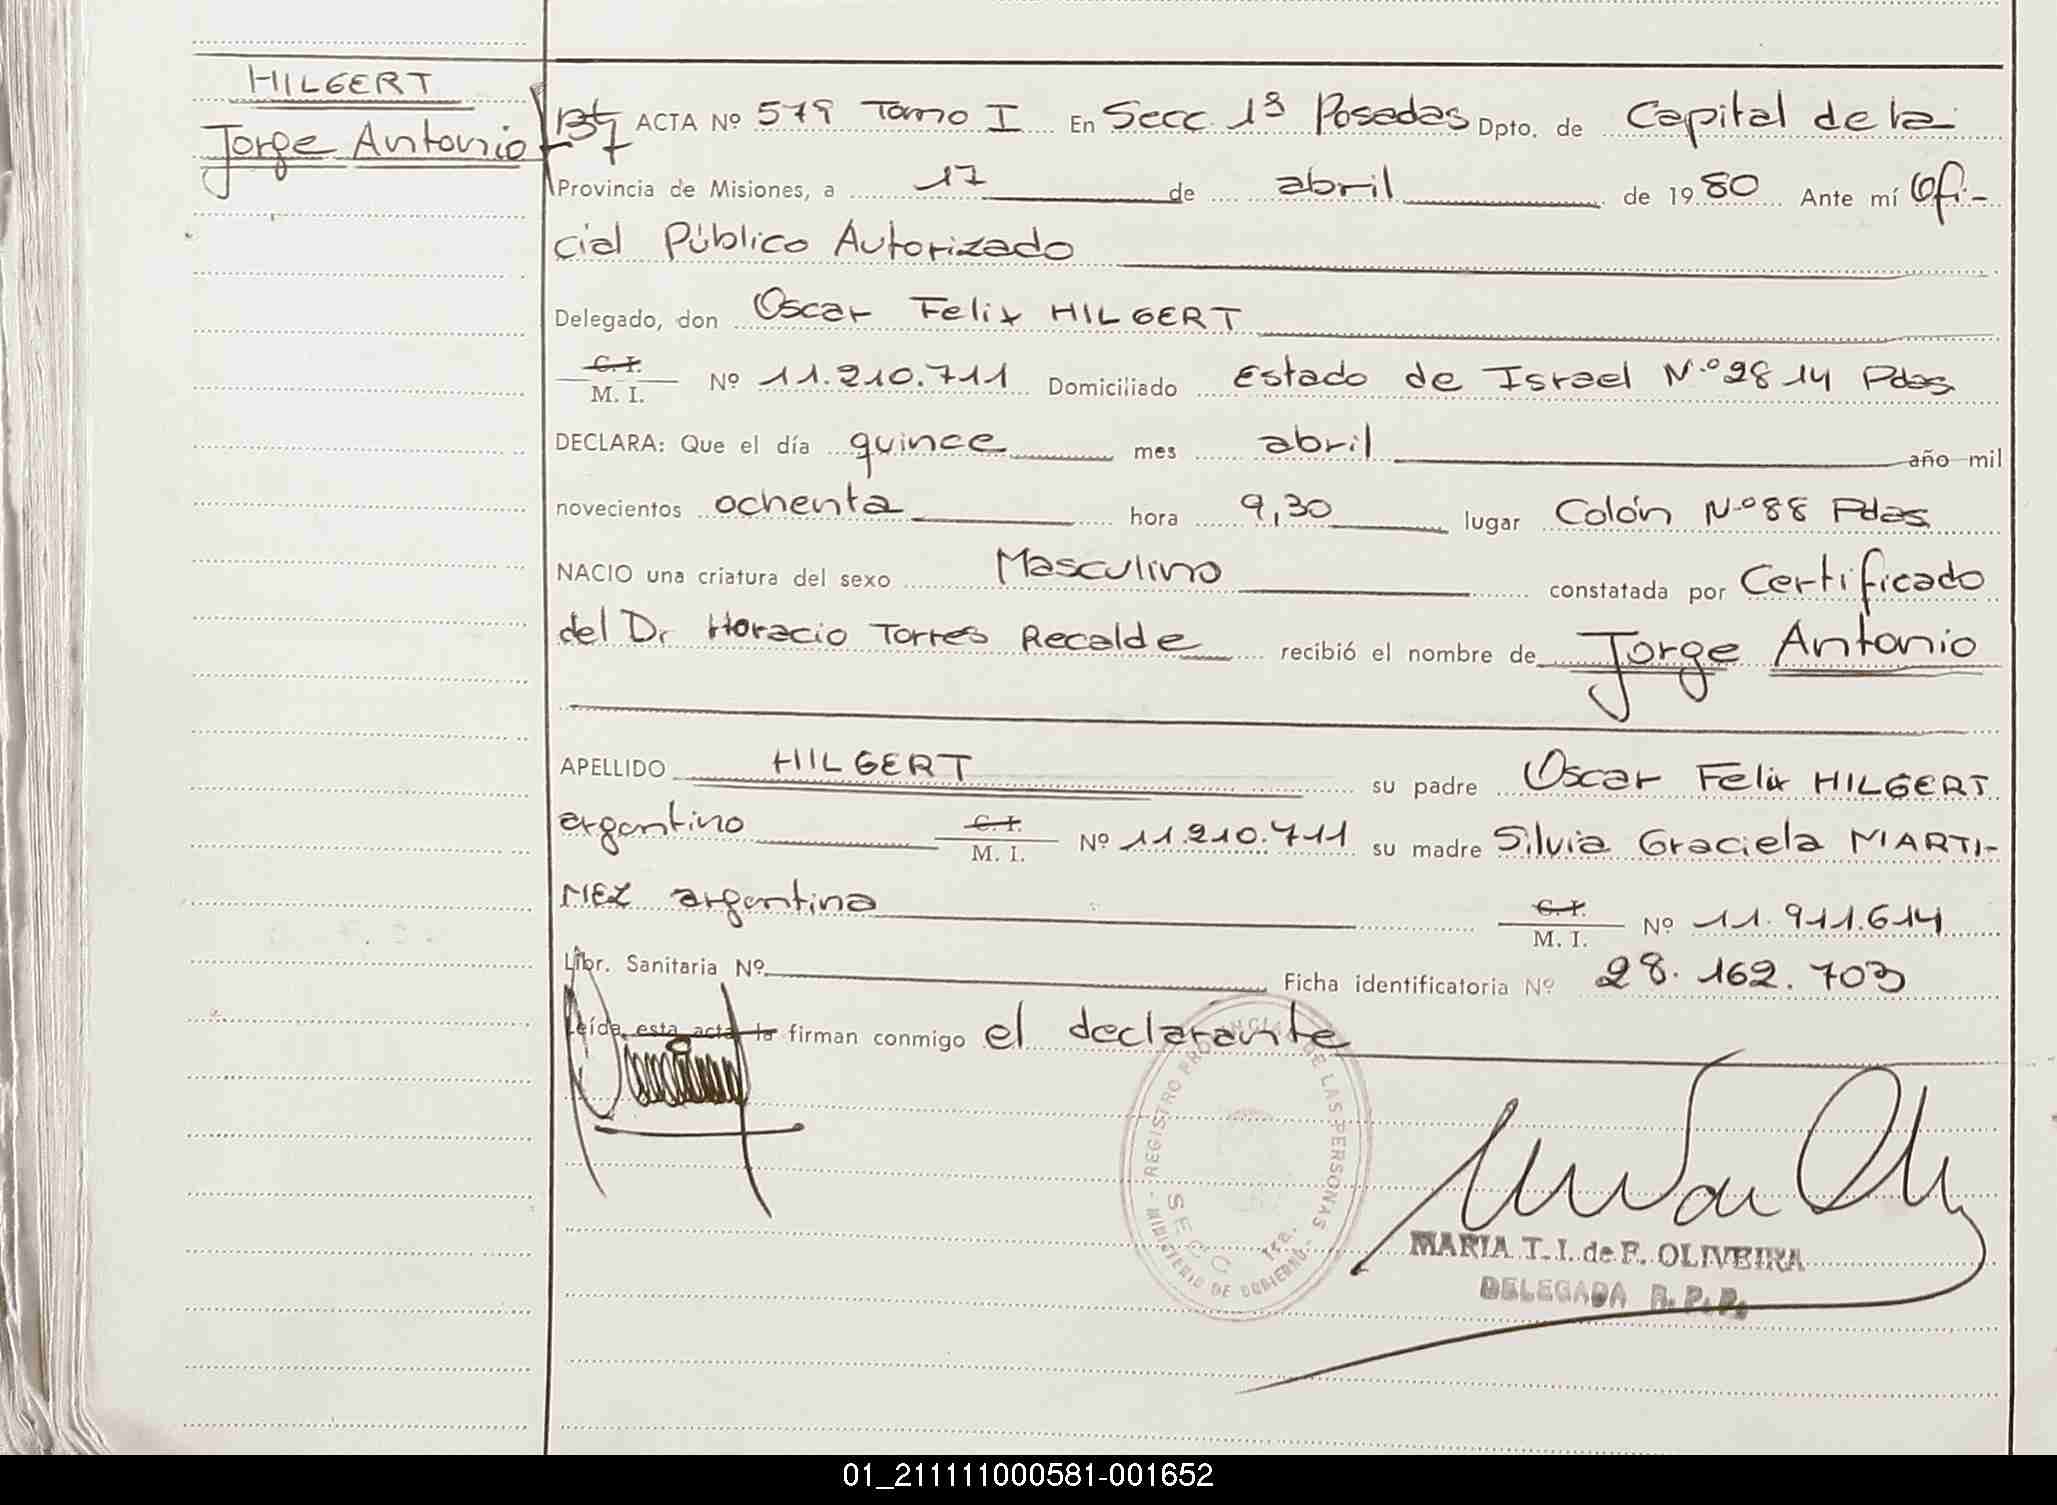 HILGERT
Jorge Antonio
ACTA Nº 579 Tomo I En Secc. 1ª Posadas Dpto. de Capital de la
Provincia de Misiones, a 17 de abril de 1980 Ante mí Ofi-
cial Público Autorizado
Delegado, don Oscar Felix HILGERT
C. I.
M. I. Nº 11.210.711 Domiciliado Estado de Israel N.º 2814 Pdas
DECLARA: Que el día quince mes abril año mil
novecientos ochenta hora 9,30 lugar Colón N.º 88 Pdas
NACIO una criatura del sexo Masculino constatada por Certificado
del Dr Horacio Torres Recalde recibió el nombre de Jorge Antonio
APELLIDO HILGERT su padre Oscar Felix HILGERT
argentino C. I. M. I. Nº 11.210.711 su madre Silvia Graciela MARTI-
NEZ argentina C. I. M. I. Nº 11.911.614
Libr. Sanitaria Nº Ficha identificatoria Nº 28.162.703
Leída, esta acta la firman conmigo el declarante
REGISTRO PROVINCIAL DE LAS PERSONAS - MINISTERIO DE GOBIERNO -
SECC 1ra.
MARIA T. I. de F. OLIVEIRA
DELEGADA R. P. P.
01_211111000581-001652